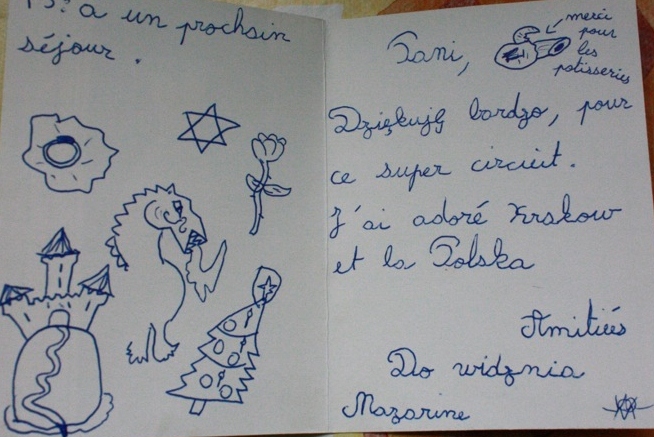 PS: à un prochain
séjour.
merci
pour
les
patisseries
Pani,
Dziękuję bardzo, pour
ce super circuit.
J'ai adoré Krakow
et la Polska
Amitiés
Do widznia
Mazarine